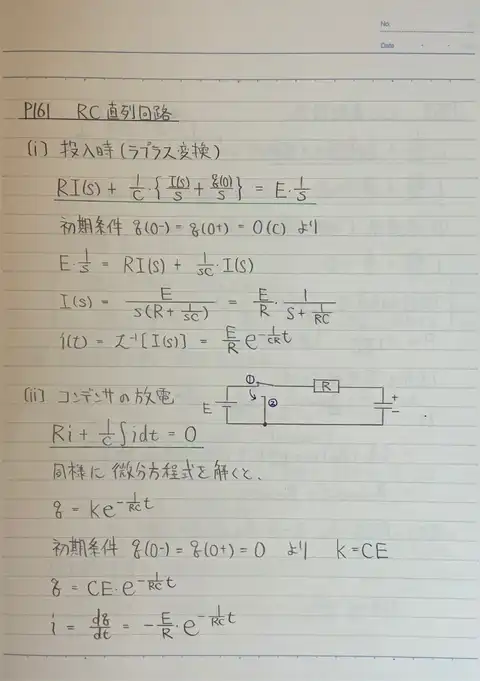 No.
Date
P161 RC直列回路
(i) 投入時(ラプラス変換)
RI(s) + 1/C・{I(s)/s + q(0)/s} = E・1/s
初期条件 q(0-) = q(0+) = 0(C) より
E・1/s = RI(s) + 1/sC・I(s)
I(s) = E/s(R + 1/sC) = E/R・1/s + 1/RC
i(t) = L⁻¹[I(s)] = E/R e^-1/CR t
(ii) コンデンサの放電
① R + E ② -
Ri + 1/C∫idt = 0
同様に微分方程式を解くと、
q = ke^-1/RC t
初期条件 q(0-) = q(0+) = 0 より k = CE
q = CE・e^-1/RC t
i = dq/dt = -E/R・e^-1/RC t